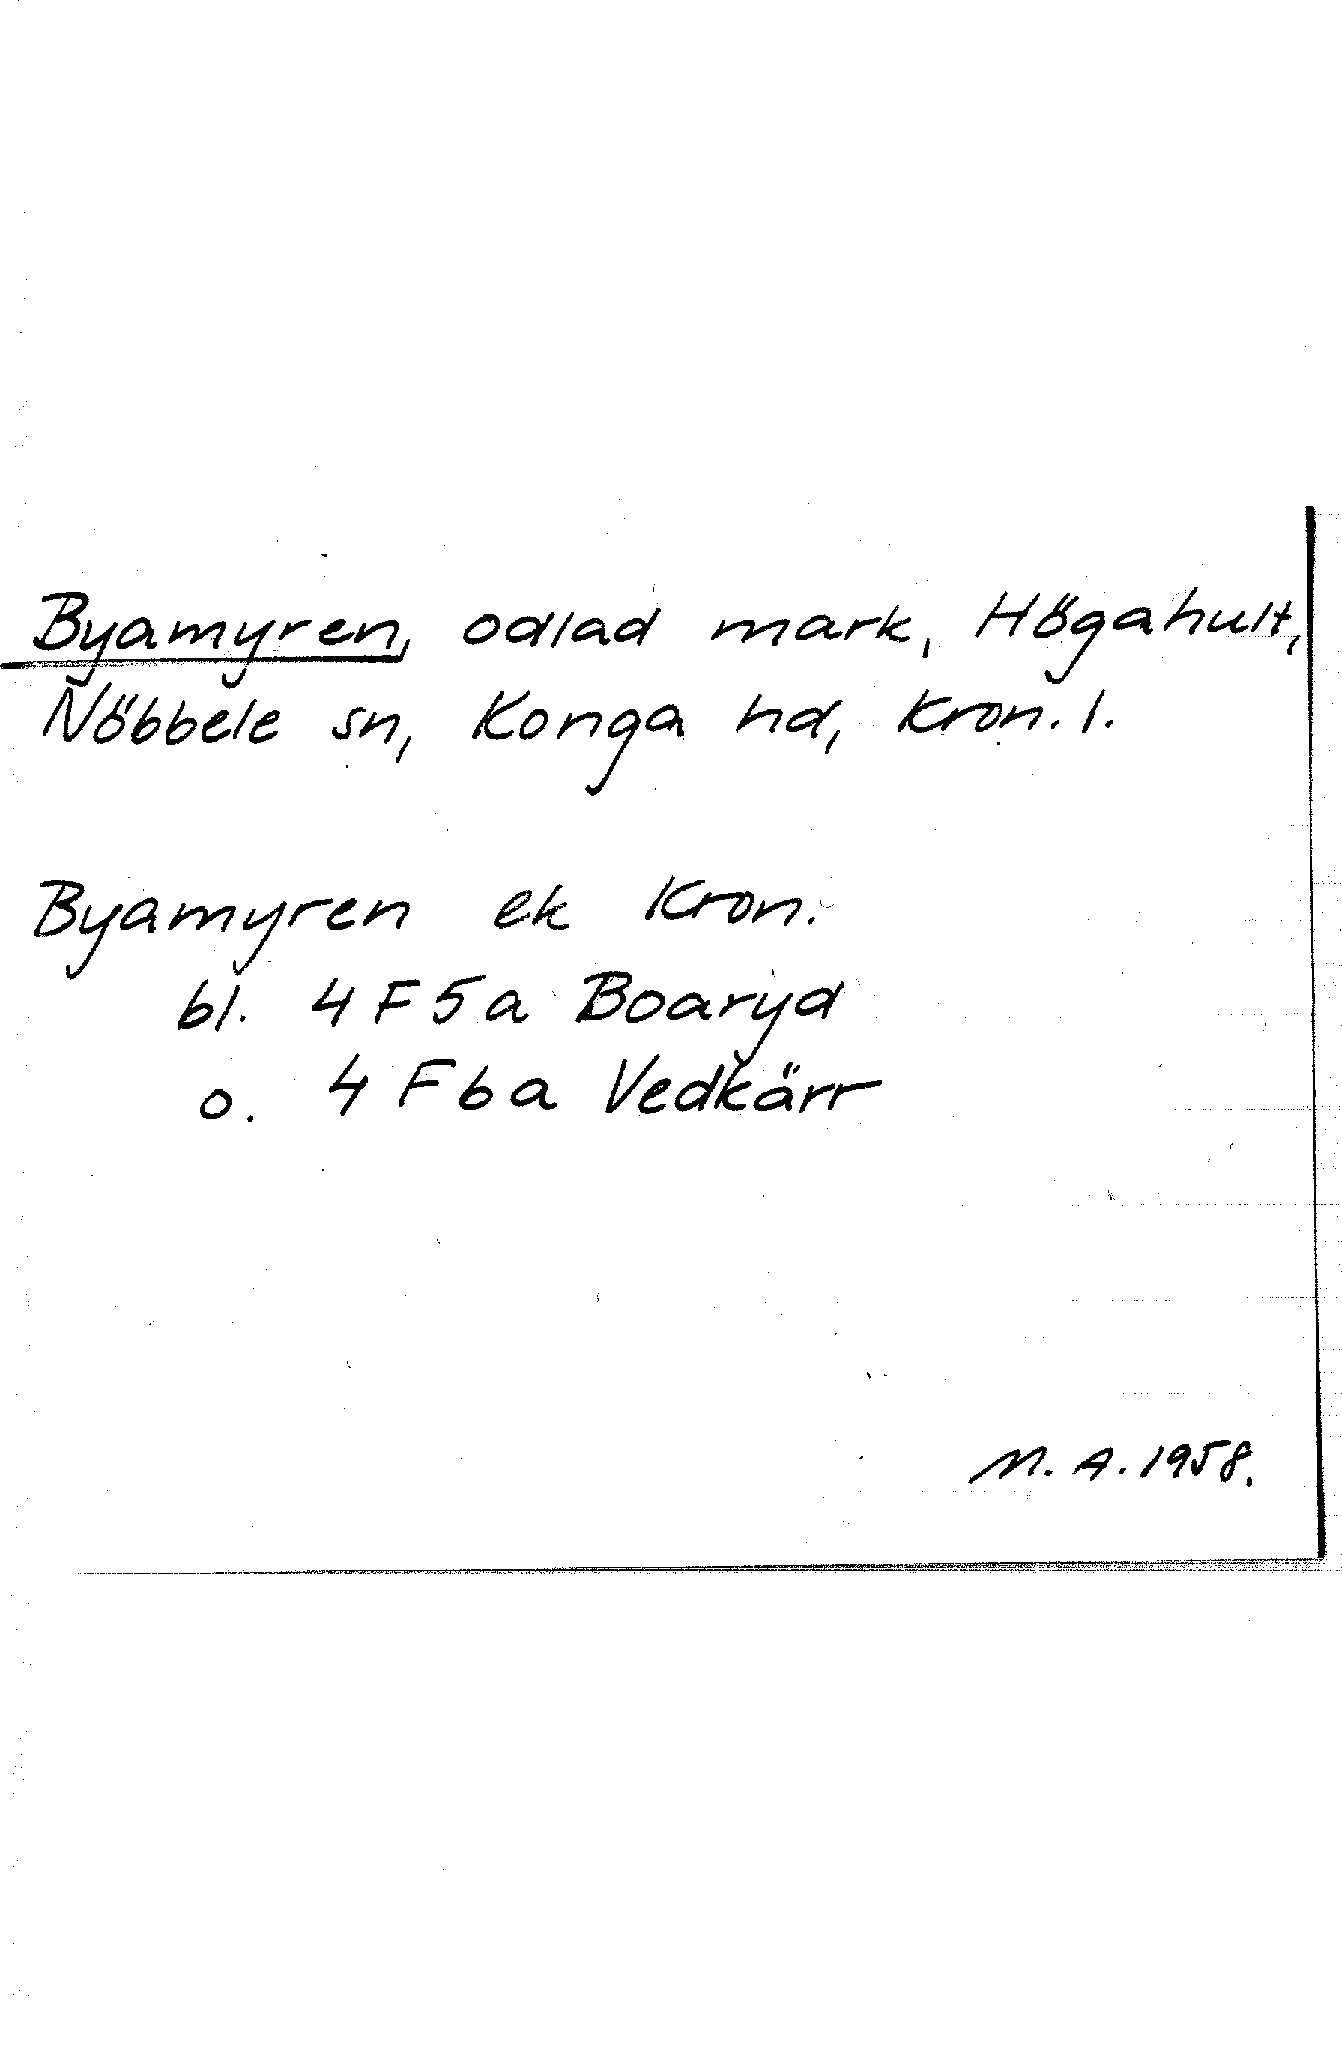 Byamyren, odlad mark, Högahult,
Nöbbele sn, Konga hd, Kron. l.
Byamyren ek Kron.
bl. 4F5a Boaryd
o. 4F6a Vedkärr
M. A. 1958.